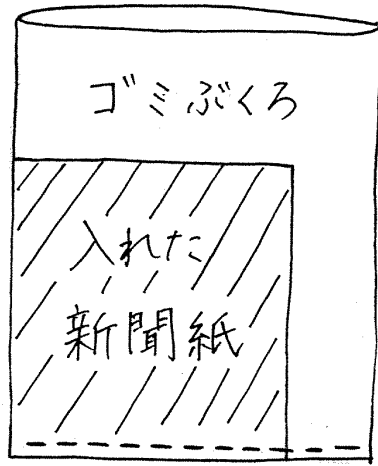 ゴミぶくろ
入れた
新聞紙